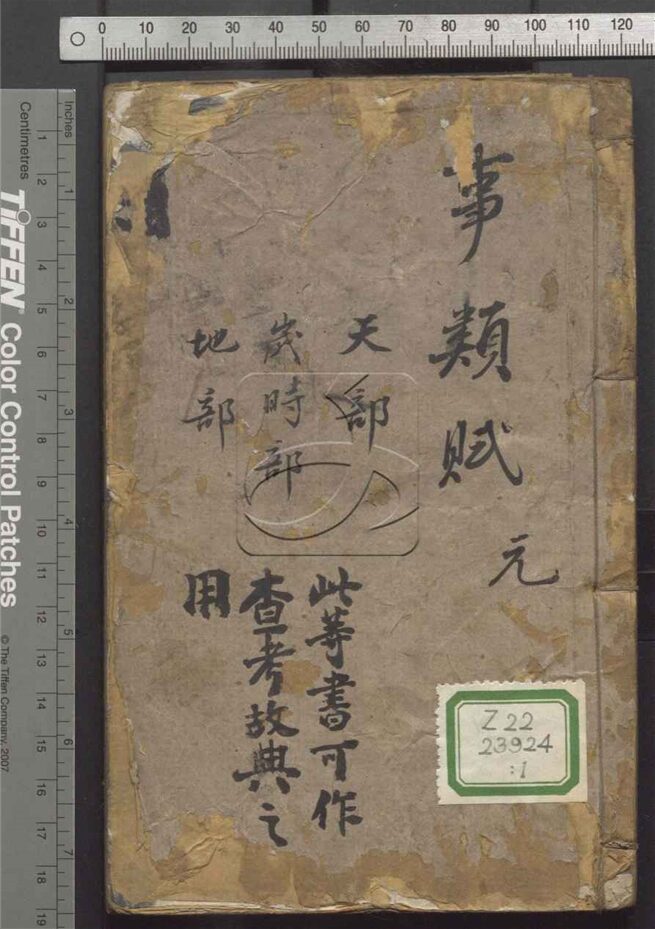 0 10 20 30 40 50 60 70 80 90 100 110 120
Inches
Centimetres
1 2 3 4 5 6 7 8 9 10 11 12 13 14 15 16 17 18 19
1 2 3 4 5 6 7
TIFFEN Color Control Patches
© The Tiffen Company, 2007
事類賦 元
天部
歲時部
地部
此等書可作
查考故典之
用
Z22
23924
:1